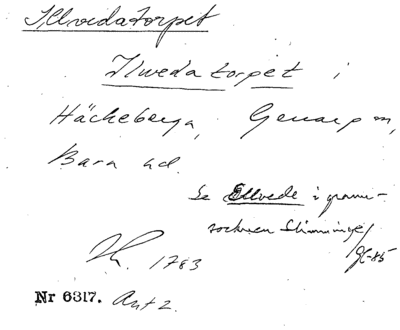 Illvedatorpet
Ilweda torpet i
Häckeberga, Genarp sn,
Bara hd.
Se Ellvede i grann-
socknen Slimminge/
GE-85
1783
Nr 6317. Ant 2.